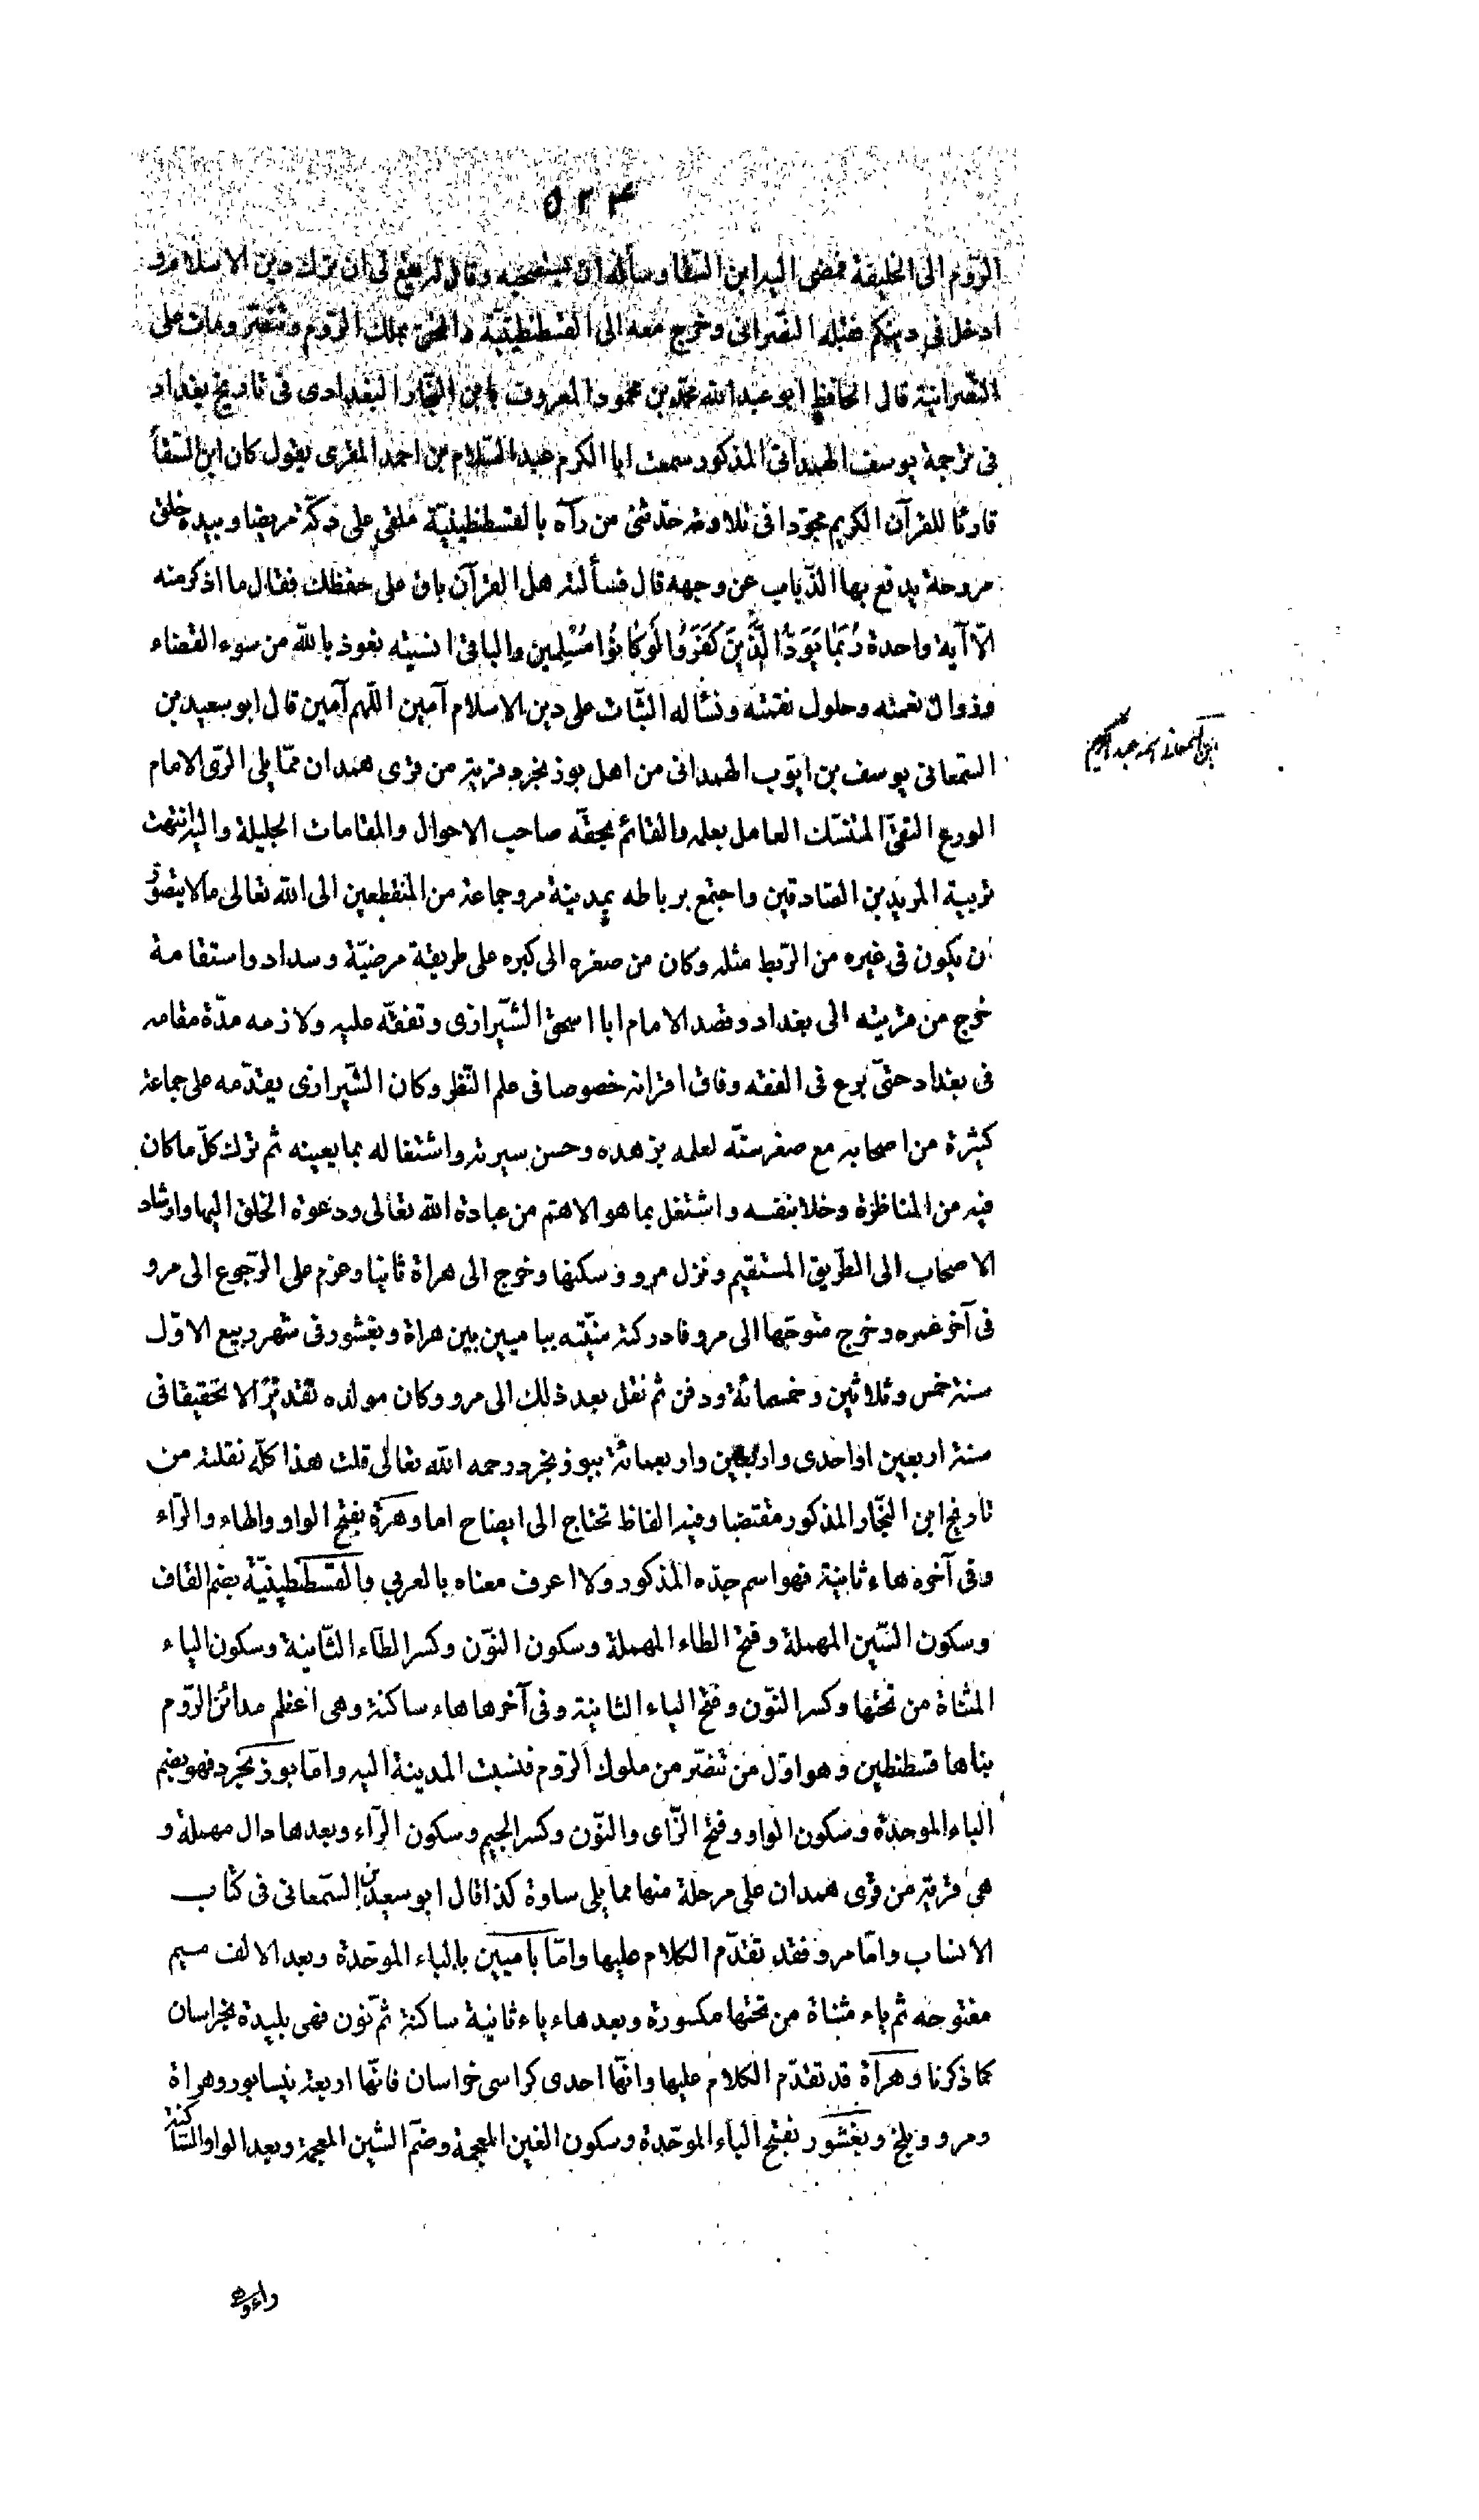 ٥٢٣
الرّوم الى الخليفة فمضى اليه ابن السّقا وسأله ان يستصحبه وقال له يقع لى ان نترك دين الاسلام و
ادخل فى دينكم فقبله النّصرانى وخرج معه الى القسطنطينيّة والتحق بملك الرّوم وتنصّر ومات على
النّصرانية قال الحافظ ابو عبد الله محمّد بن محمود المعروف بابن النّجّار البغدادى فى تاريخ بغداد
فى ترجمة يوسف الهمدانى المذكور سمعت ابا الكرم عبد السّلام بن احمد المقرى يقول كان ابن السّقأ
قارئا للقرآن الكريم مجوّدا فى تلاوته حدّثنى من رآه بالقسطنطينيّة ملقى على دكّة مريضا وبيده خلق
مروحة يدفع بها الذّباب عن وجهه قال فسألته هل القرآن باق على حفظك فقال ما اذكر منه
الّا آية واحدة رُبَمَا يَوَدُّ الَّذِينَ كَفَرُوا لَوْ كَانُوا مُسْلِمِين والباقى انسيته نعوذ بالله من سوء القضاء
وزوال نعمته وحلول نقمته ونسأله الثّبات على دين الاسلام آمين اللّهم آمين قال ابو سعيد بن
السّمعانى يوسف بن ايّوب الهمدانى من اهل بوزنجرد قرية من قرى همدان ممّا يلى الرّى الامام
الورع التّقىّ المتنسّك العامل بعلمه والقائم بحقّه صاحب الاحوال والمقامات الجليلة واليه انتهت
تربية المريدين الصّادقين واجتمع برباطه بمدينة مرو جماعة من المنقطعين الى الله تعالى ما لا يتصوّر
ان يكون فى غيره من الرّبط مثله وكان من صغره الى كبره على طريقة مرضيّة وسداد واستقامة
خرج من قريته الى بغداد وقصد الامام ابا اسحق الشّيرازى وتفقّه عليه ولازمه مدّة مقامه
فى بغداد حتّى برع فى الفقه وفاق اقرانه خصوصا فى علم النّظر وكان الشّيرازى يقدّمه على جماعة
كثيرة من اصحابه مع صغر سنّه لعلمه بزهده وحسن سيرته واشتغاله بما يعينه ثم ترك كلّ ما كان
فيه من المناظرة وخلا بنفسه واشتغل بما هو الاهتم من عبادة الله تعالى ودعوة الخلق اليها وارشاد
الاصحاب الى الطّريق المستقيم ونزل مرو وسكنها وخرج الى هراة ثانيا وعزم على الرّجوع الى مرو
فى آخر عمره وخرج متوجّها الى مرو فادركته منيّته ببا ميين بين هراة وبغشور فى شهر ربيع الاوّل
سنة خمس وثلاثين وخمسمائة ودفن ثم نقل بعد ذلك الى مرو وكان مولده تقديرًا لا تحقيقا فى
سنة اربعين او احدى واربعين واربعمائة ببوزنجرد رحمه الله تعالى قلت هذا كلّه نقلته من
تاريخ ابن النّجّار المذكور مقتضبا وفيه الفاظ تحتاج الى ايضاح اما وهرة بفتح الواو والهاء والرّاء
وفى آخره هاء ثانية فهو اسم جدّه المذكور ولا اعرف معناه بالعربي والقسطنطينيّة بضم القاف
وسكون السّين المهملة وفتح الطاء المهملة وسكون النّون وكسر الطّاء الثّانية وسكون الياء
المثناة من تحتها وكسر النّون وفتح الياء الثانية وفى آخرها هاء ساكنة وهى اعظم مدائن الرّوم
بناها قسطنطين وهو اوّل من تنصّر من ملوك الرّوم فنسبت المدينة اليه وامّا بوزنجرد فهو بضم
الباء الموحدة وسكون الواو وفتح الزّاى والنّون وكسر الجيم وسكون الرّاء وبعدها دال مهملة و
هى قرية من قرى همدان على مرحلة منها مما يلى ساوة كذا قال ابو سعيد بن السّمعانى فى كتاب
الانساب وامّا مرو فقد تقدّم الكلام عليها وامّا باميين بالباء الموحّدة وبعد الالف ميم
مفتوحه ثم ياء مثناة من تحتها مكسورة وبعدها ياء ثانية ساكنة ثمّ نون فهى بليدة بخراسان
كما ذكرنا وهراة قد تقدّم الكلام عليها وانّها احدى كراسى خراسان فانّها اربعة نيسابور وهراة
ومرو وبلخ وبغشور بفتح الباء الموحّدة وسكون الغين المعجمة وضمّ الشين المعجمة وبعد الواو السّاكنة
راء وهى
ابن السمعانى اسمه عبد الكريم